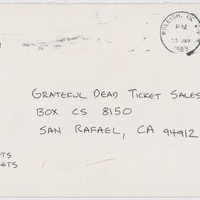 RALEIGH, NC
PM
1983
GRATEFUL DEAD TICKET SALES
BOX CS 8150
SAN RAFAEL, CA 94912
TS
ETS